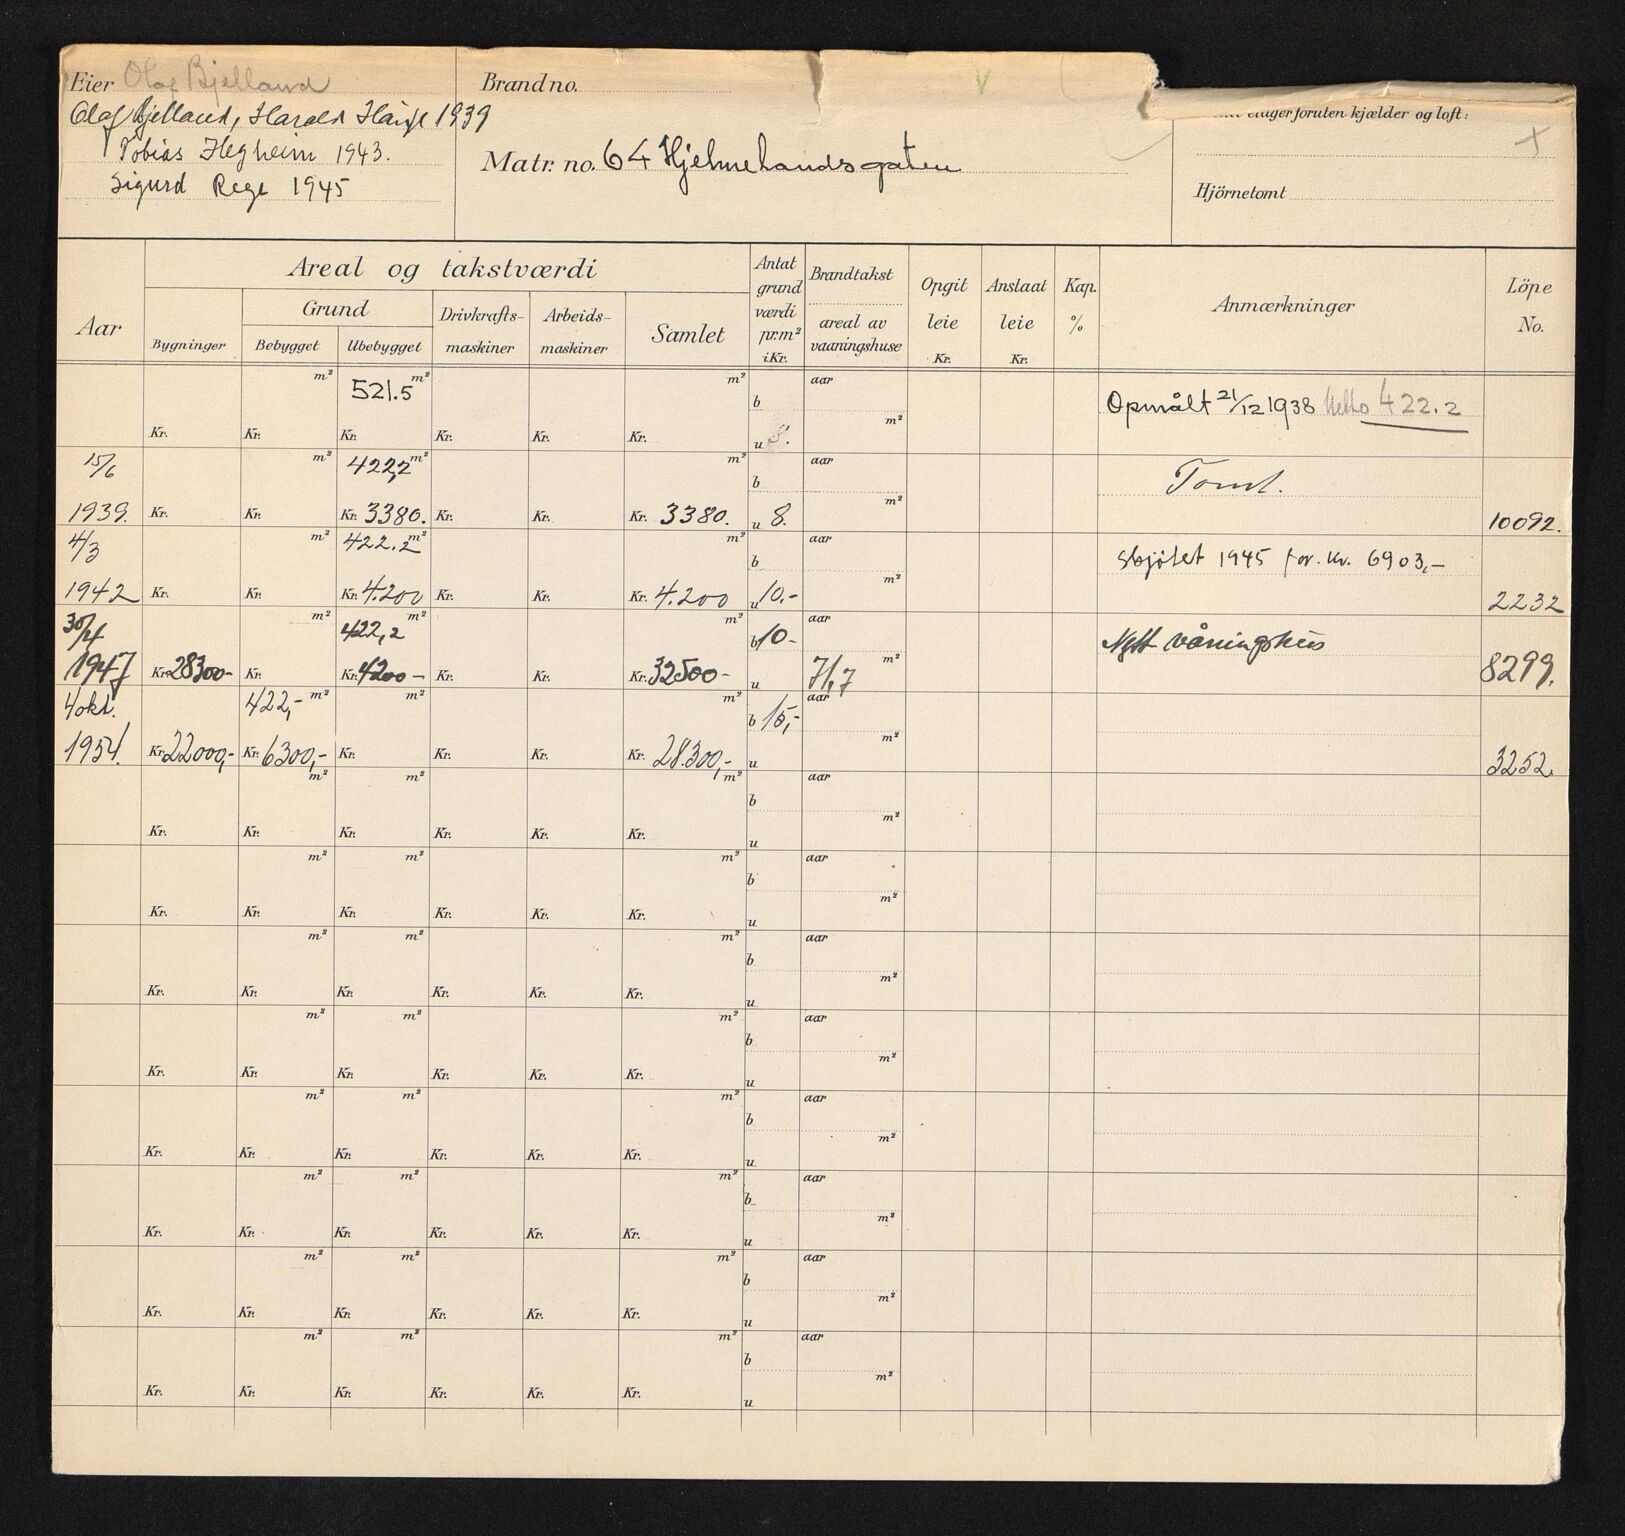 Eier Olaf Bjelland
Olaf Bjelland, Harald 1939
Tobias Hegheim 1943.
Sigurd Rege 1945
Brand no.
Matr. no. 64 Hjelmelandsgaten
etager foruten kjælder og loft:
Hjörnetomt
Aar
Areal og takstværdi
Bygninger
Grund
Bebygget
Ubebygget
Drivkrafts-
maskiner
Arbeids-
maskiner
Samlet
Antat
grund
værdi
pr.m²
i Kr.
Brandtakst
areal av
vaaningshuse
Opgit
leie
Kr.
Anslaat
leie
Kr.
Kap.
%
Anmærkninger
Löpe
No.
m² 521.5 m² m² b aar
Kr. Kr. Kr. Kr. Kr. Kr. u 8. m² Opmålt 21/12 1938 Netto 422.2
15/6 m² 422,2 m² m² b aar Tomt.
1939. Kr. Kr. Kr. 3380. Kr. Kr. Kr. 3380. u 8. m² 10092.
4/3 m² 422.2 m² m² b aar skjötet 1945 for. kr. 6903,-
1942 Kr. Kr. Kr. 4.200 Kr. Kr. Kr. 4.200 u 10.- m² 2232
30/4 m² 422,2 m² m² b 10- aar Nytt våningshus
1947 Kr. 28300- Kr. Kr. 4200- Kr. Kr. Kr. 32500- u 71,7 m² 8299.
4 okt. 422,- m² m² m² b 15,- aar
1954. Kr. 22000,- Kr. 6300,- Kr. Kr. Kr. Kr. 28.300,- u m² 3252.
m² m² m² b aar
Kr. Kr. Kr. Kr. Kr. Kr. u m²
m² m² m² b aar
Kr. Kr. Kr. Kr. Kr. Kr. u m²
m² m² m² b aar
Kr. Kr. Kr. Kr. Kr. Kr. u m²
m² m² m² b aar
Kr. Kr. Kr. Kr. Kr. Kr. u m²
m² m² m² b aar
Kr. Kr. Kr. Kr. Kr. Kr. u m²
m² m² m² b aar
Kr. Kr. Kr. Kr. Kr. Kr. u m²
m² m² m² b aar
Kr. Kr. Kr. Kr. Kr. Kr. u m²
m² m² m² b aar
Kr. Kr. Kr. Kr. Kr. Kr. u m²